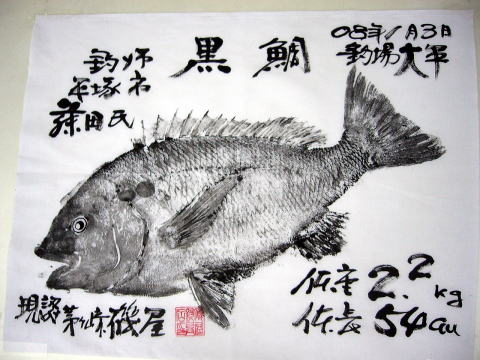 黒鯛
08年1月3日
釣場大平
釣り师
平塚市
藤田氏
体重2.2kg
体長54cm
現認茅ヶ崎磯屋